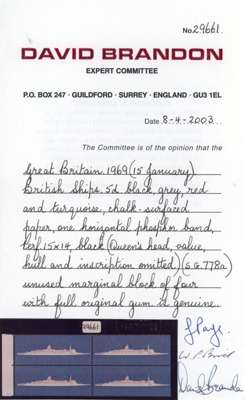 No. 29661.
DAVID BRANDON
EXPERT COMMITTEE
P.O. BOX 247 · GUILDFORD · SURREY · ENGLAND · GU3 1EL
Date 8-4-2003
The Committee is of the opinion that the
Great Britain. 1969 (15 January)
British Ships. 5d. black, grey, red
and turquoise, chalk-surfaced
paper, one horizontal phosphor band,
perf. 15x14, black (Queen's head, value,
hull and inscription omitted) (S.G.778a)
unused marginal block of four
with full original gum is genuine.
29661
David Brandon